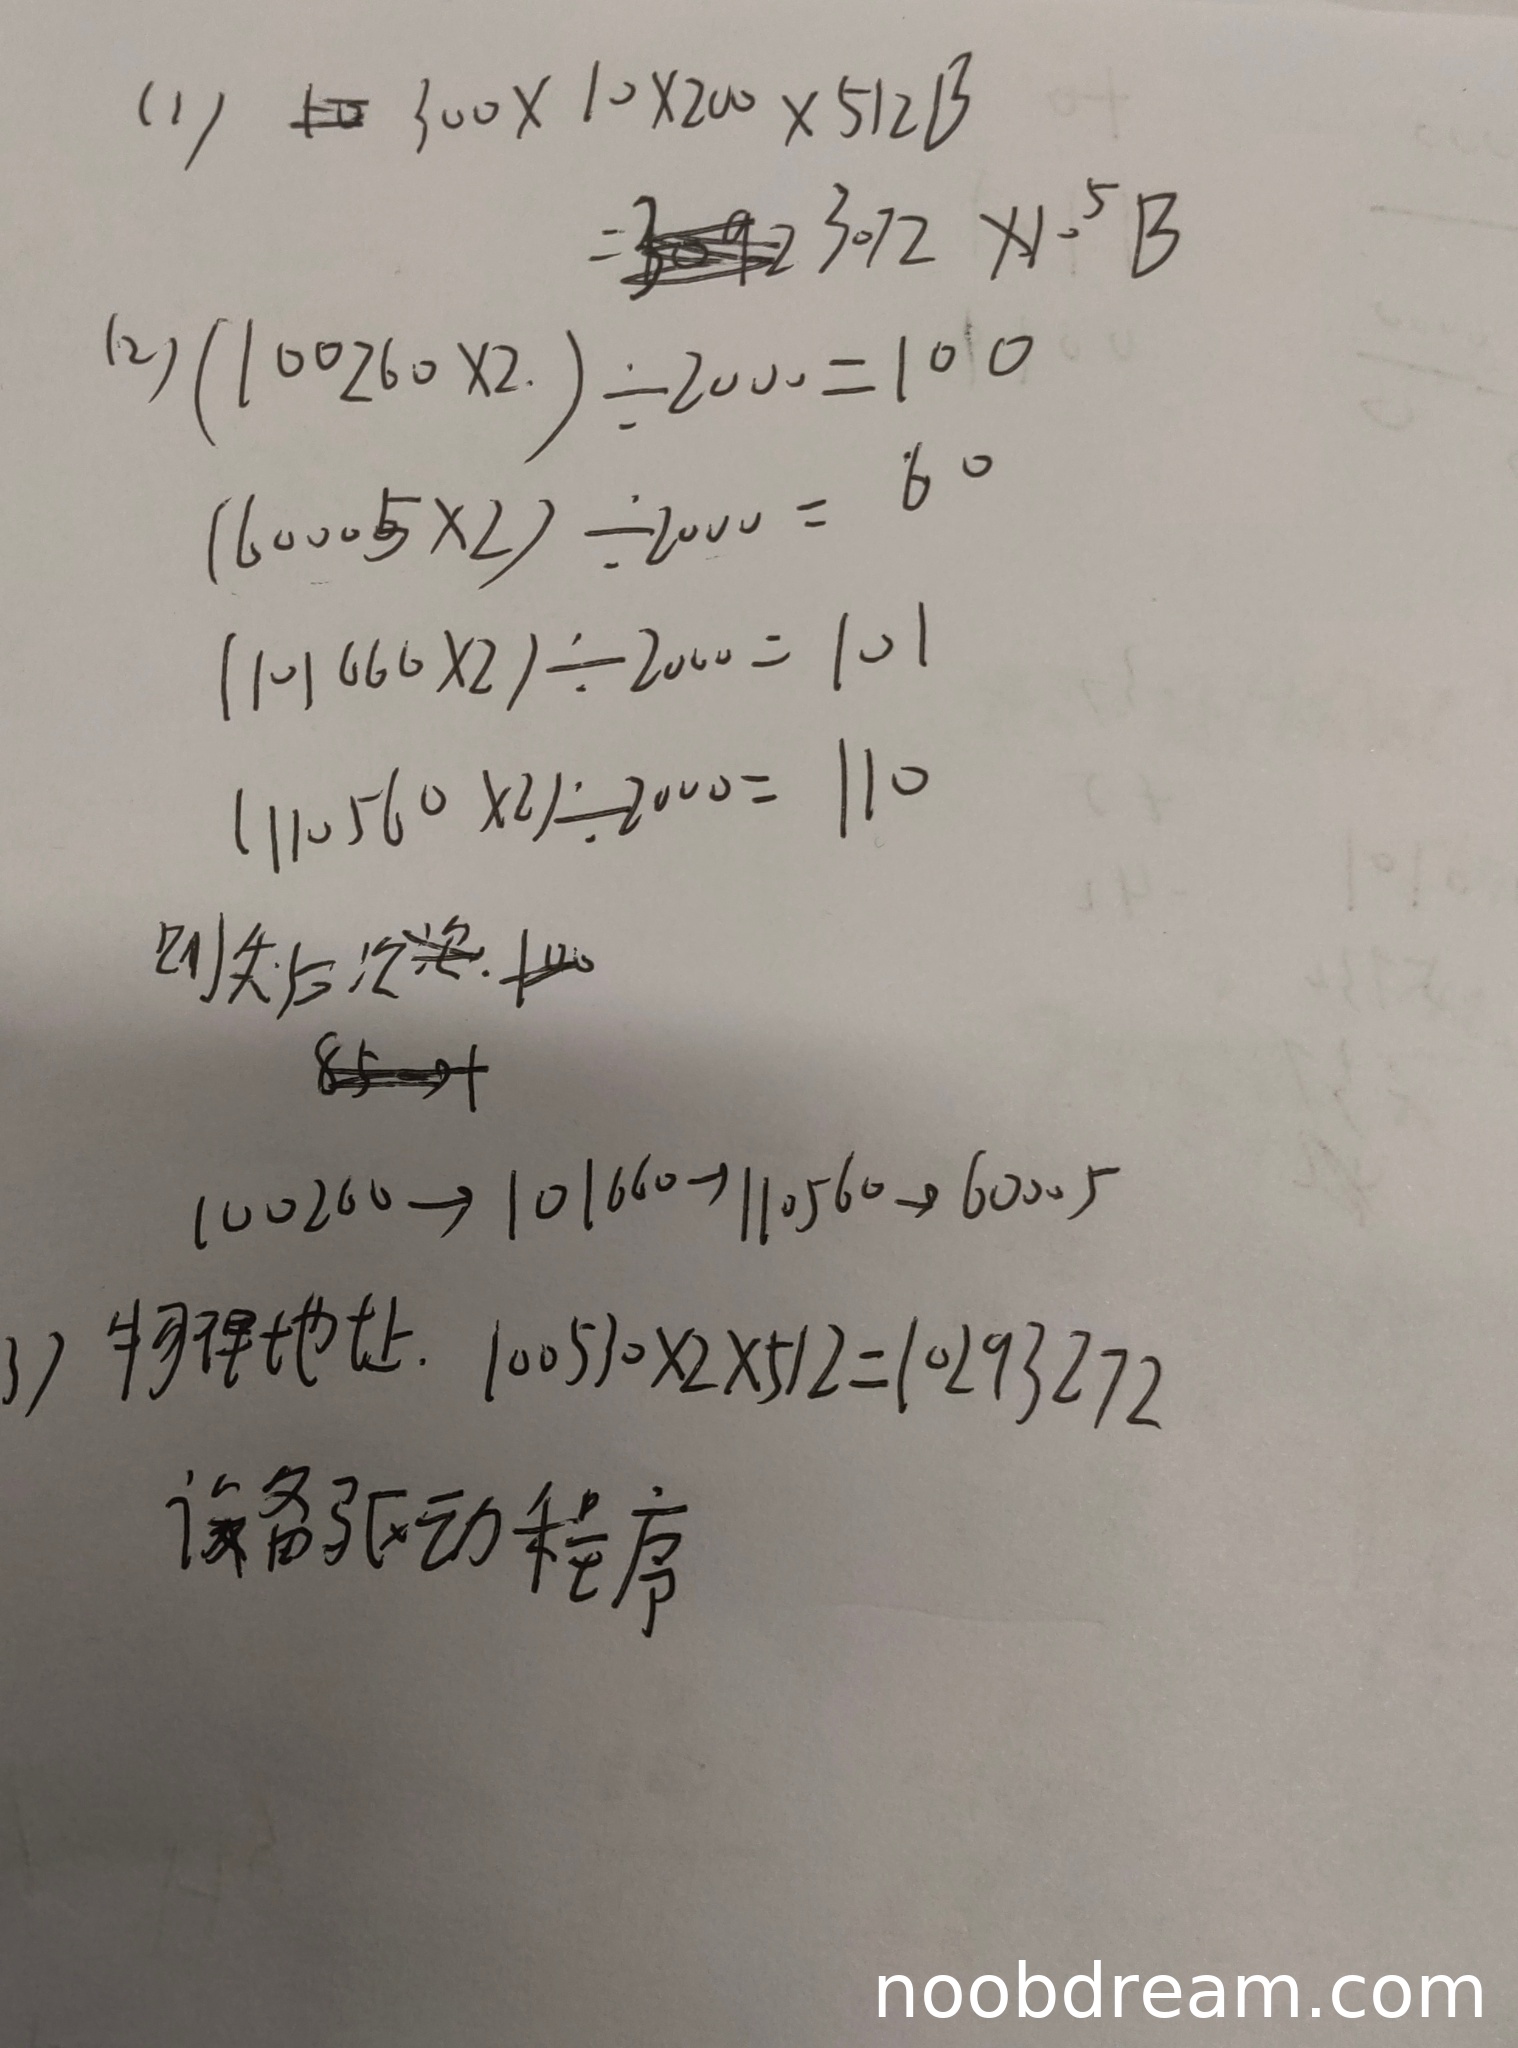 (1) 300×10×200×512B
=3072×10^5 B
(2) (100260×2)÷2000=100
(60005×2)÷2000=60
(101660×2)÷2000=101
(110560×2)÷2000=110
则先后次
100260→101660→110560→60005
3) 物理地址. 100530×2×512=10293272
设备驱动程序
noobdream.com